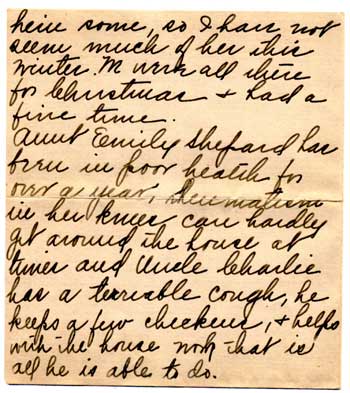 here some, so I have not
seem much of her this
winter. We were all there
for Christmas + had a
fine time.
Aunt Emily Shepard has
been in poor health for
over a year, rheumatism
in her knees can hardly
get around the house at
times and Uncle Charlie
has a terriable cough, he
keeps a few chickens, + helps
with the house work that is
all he is able to do.